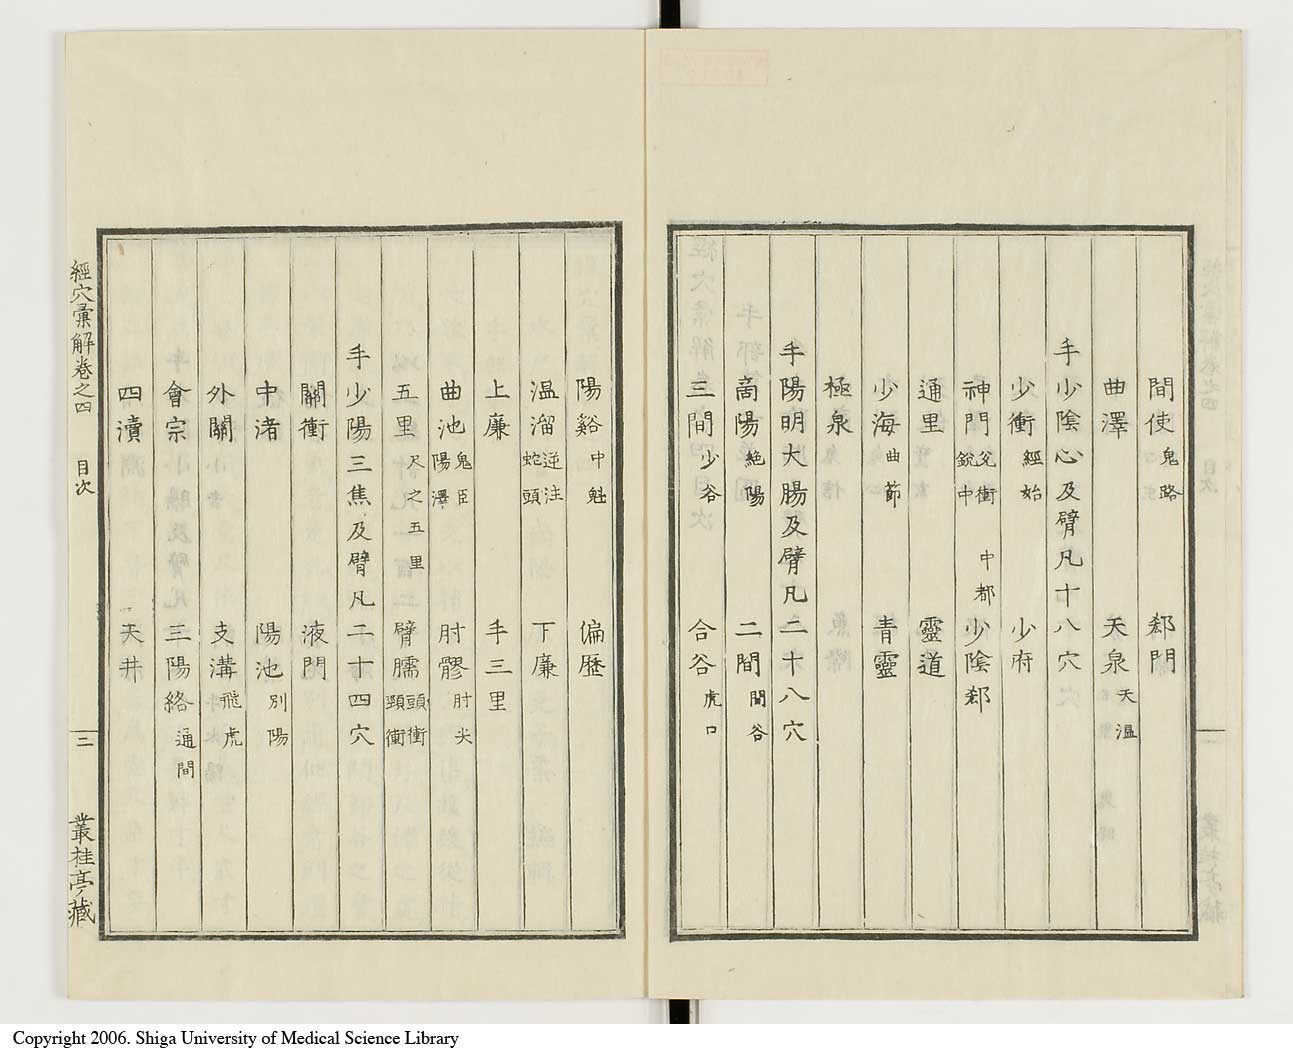 間使 鬼路 郄門
曲澤 天泉 天溫
手少陰心及臂凡十八穴
少衝 經始 少府
神門 兌衝 銳中 中都 少陰郄
通里 靈道
少海 曲節 青靈
極泉
手陽明大腸及臂凡二十八穴
商陽 絶陽 二間 間谷
三間 少谷 合谷 虎口
陽谿 中魁 偏歷
溫溜 逆注 蛇頭 下廉
上廉 手三里
曲池 鬼臣 陽澤 肘髎 肘尖
五里 尺之五里 臂臑 頭衝 頸衝
手少陽三焦及臂凡二十四穴
關衝 液門
中渚 陽池 別陽
外關 支溝 飛虎
會宗 三陽絡 通間
四瀆 天井
經穴彙解卷之四 目次 二 叢桂亭藏
Copyright 2006. Shiga University of Medical Science Library